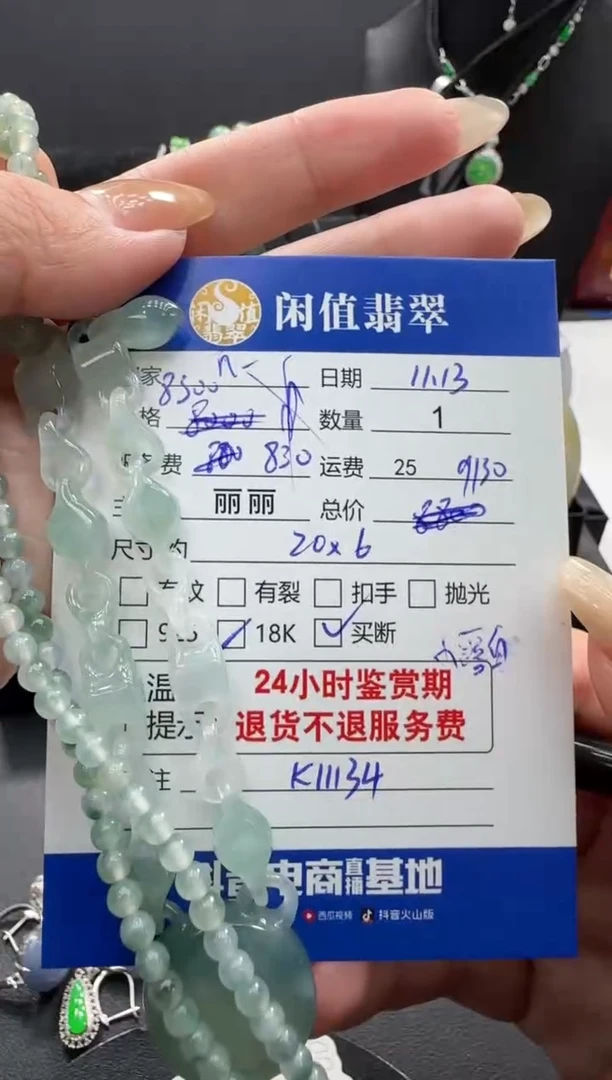 闲值翡翠
闲值翡翠
家 8500 日期 11.13
格 数量 1
费 830 运费 25 9130
丽丽 总价
尺寸 约 20x6
纹 有裂 扣手 抛光
18K 买断
温 24小时鉴赏期
提示 退货不退服务费
注 K11134
抖音电商直播基地
西瓜视频 抖音火山版